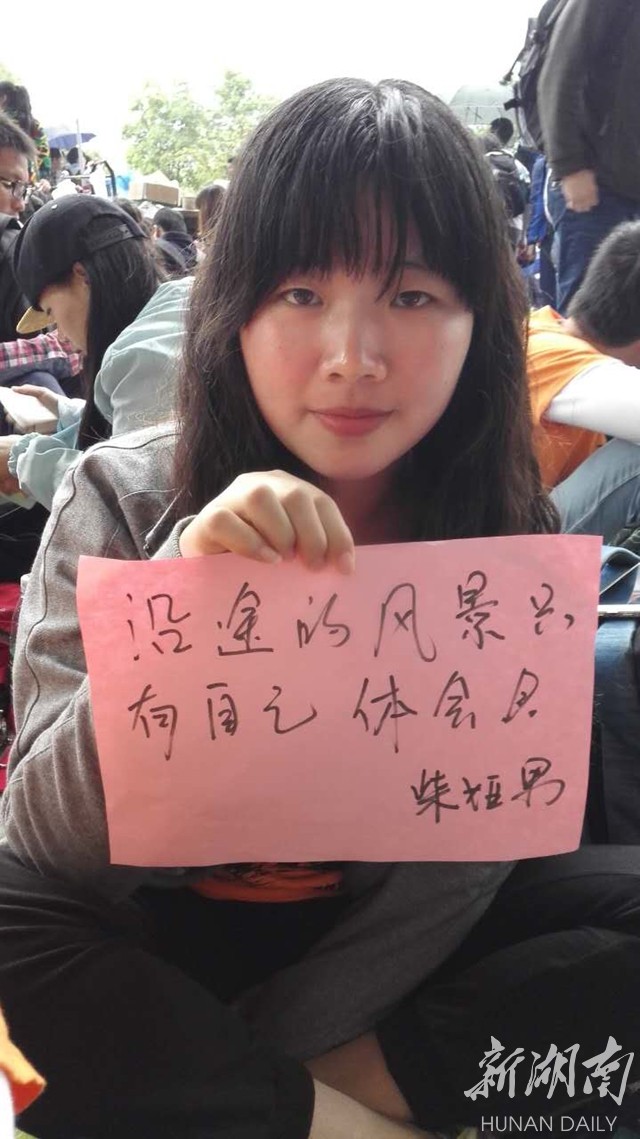 沿途的风景只
有自己 体会
柴 男
新湖南
HUNAN DAILY